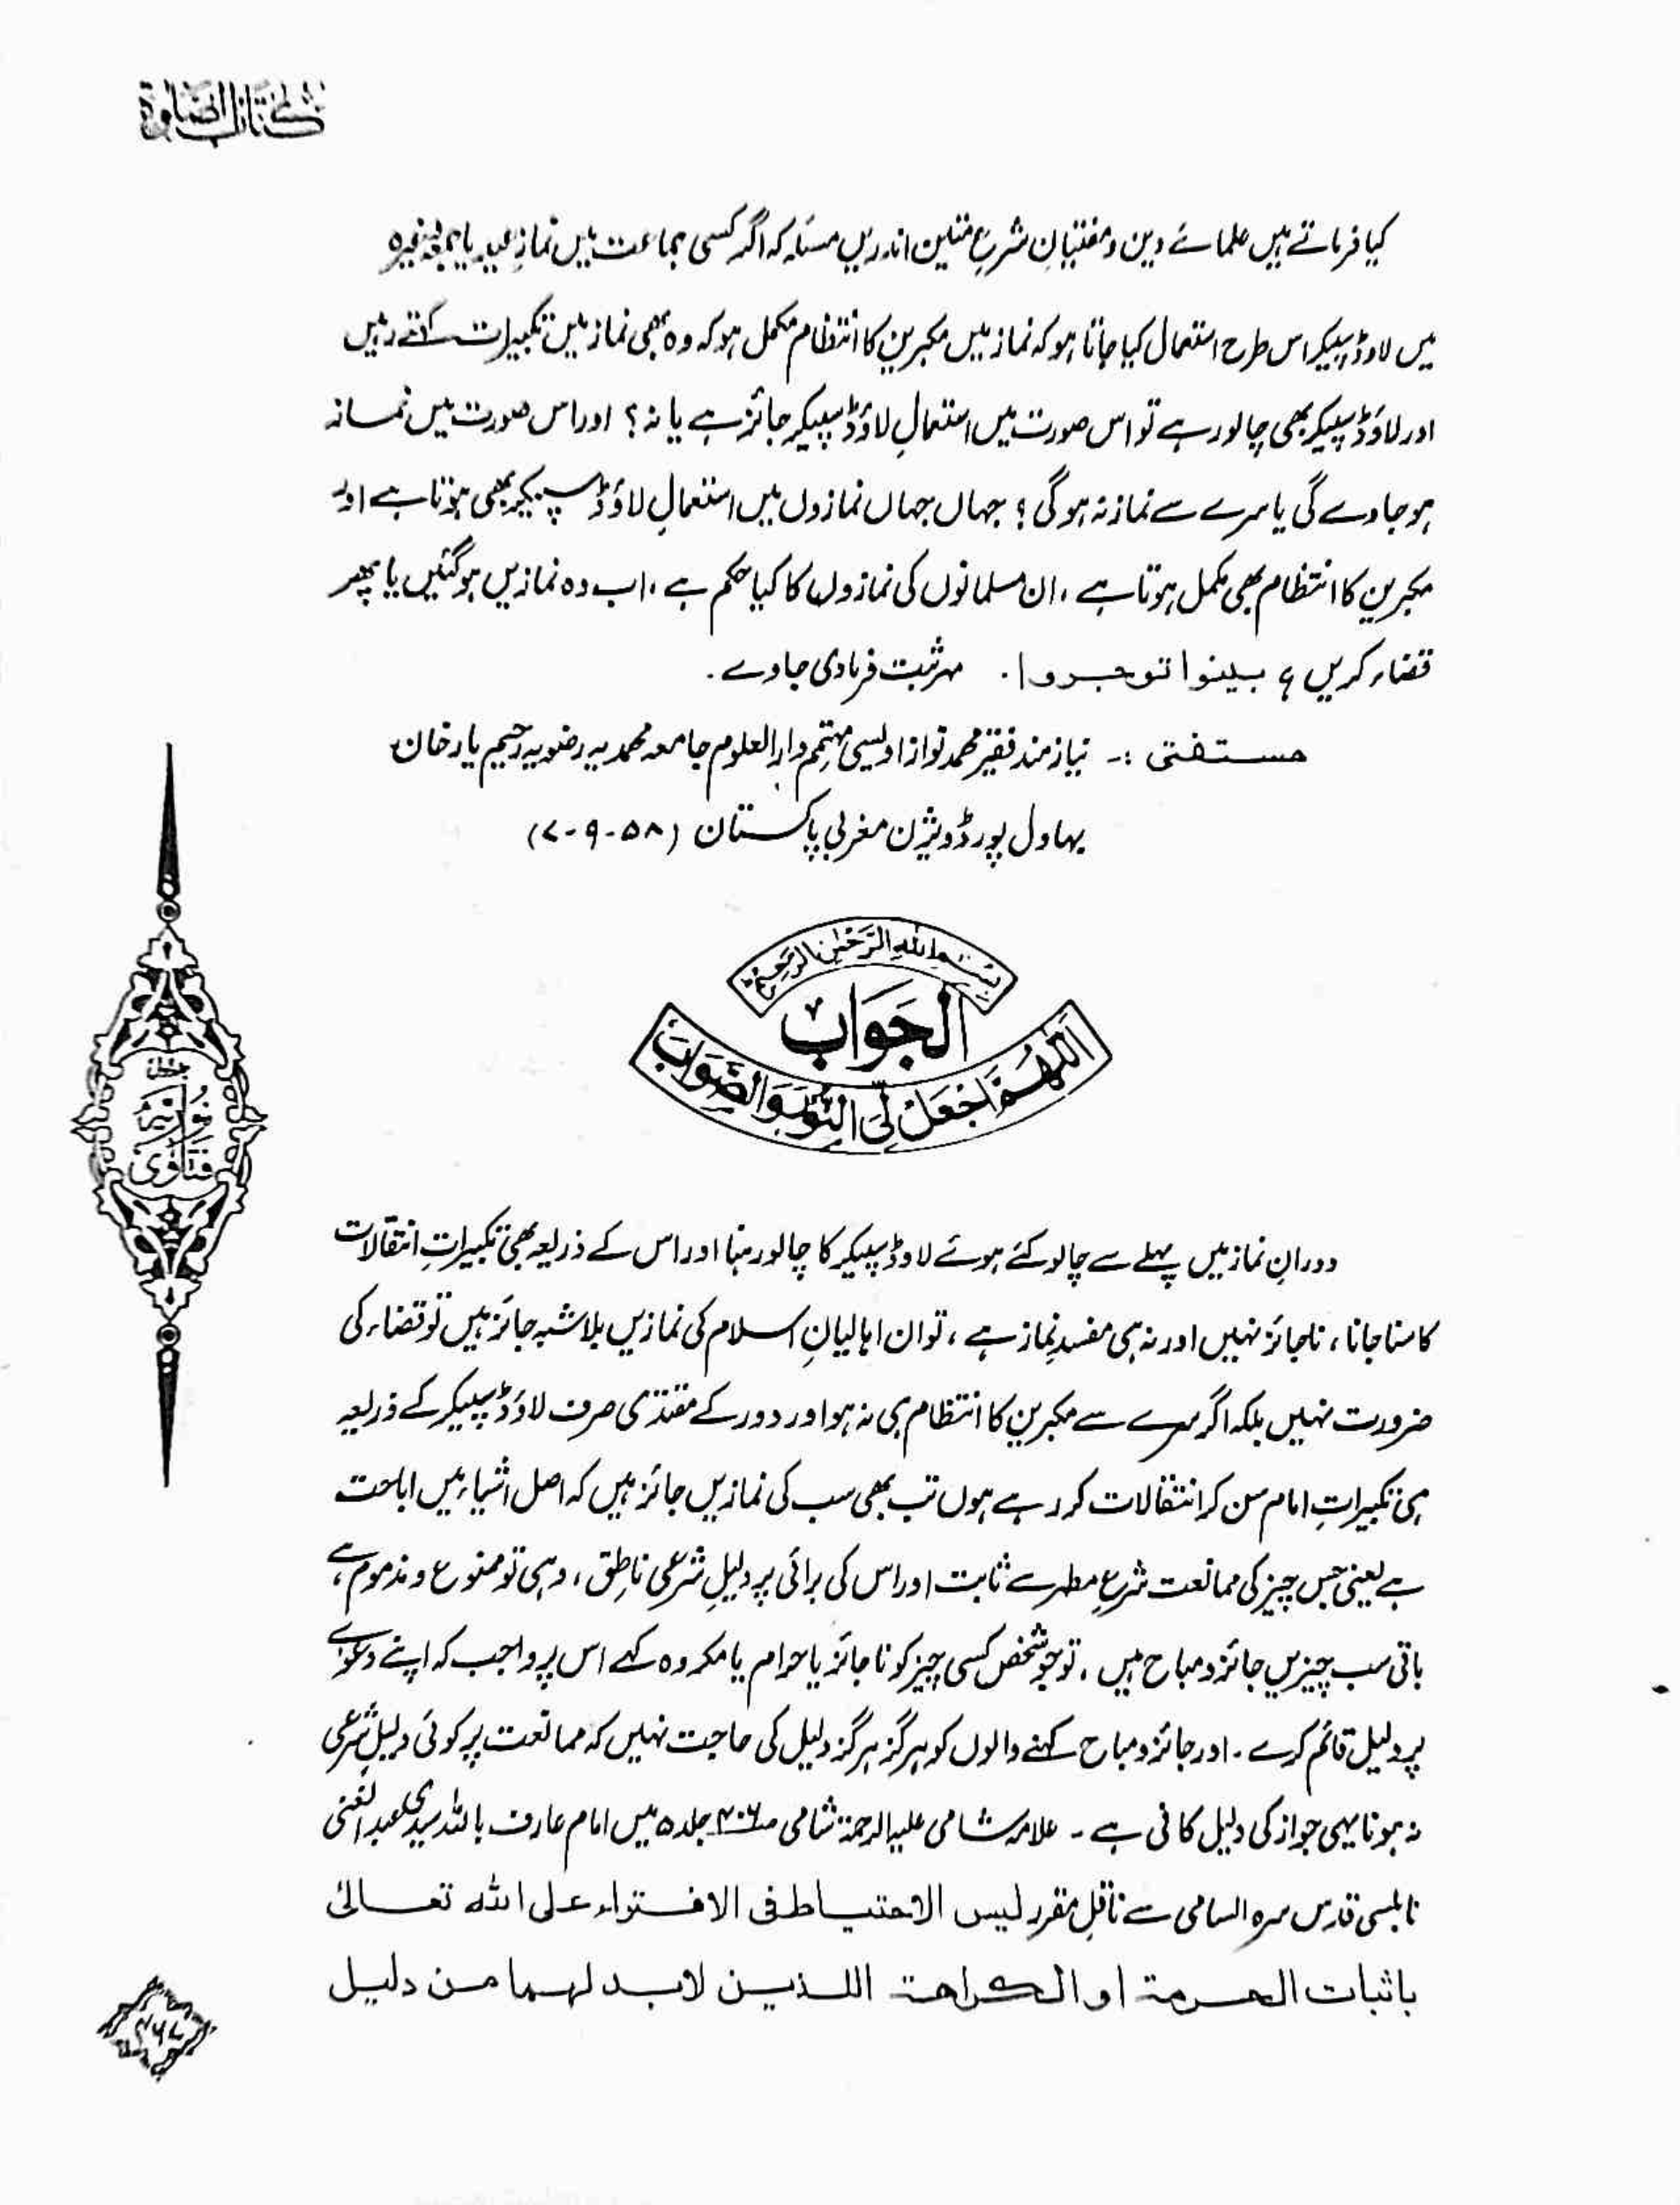 كتاب الصلوة
کیا فرماتے ہیں علمائے دین و مفتیانِ شرع متین اندریں مسئلہ کہ اگر کسی جماعت میں نمازِ عید یا جمعہ وغیرہ
میں لاوڈ سپیکر اس طرح استعمال کیا جاتا ہو کہ نماز میں مکبرین کا انتظام مکمل ہو کہ وہ بھی نماز میں تکبیرات کہتے رہیں
اور لاؤڈ سپیکر بھی چالو رہے تو اس صورت میں استعمالِ لاؤڈ سپیکر جائز ہے یا نہ؟ اور اس صورت میں نماز
ہو جاوے گی یا سرے سے نماز نہ ہو گی؟ جہاں جہاں نمازوں میں استعمالِ لاؤڈ سپیکر بھی ہوتا ہے اور
مکبرین کا انتظام بھی مکمل ہوتا ہے، ان مسلمانوں کی نمازوں کا کیا حکم ہے، اب وہ نمازیں ہو گئیں یا پھر
قضاء کریں؟ بینوا توجروا. مہر ثبت فرما دی جاوے.
مستفتی :۔ نیاز مند فقیر محمد نواز اویسی مہتمم دار العلوم جامعہ محمدیہ رضویہ رحیم یار خان
بہاول پور ڈویژن مغربی پاکستان (۵۸-۹-۷)
بسم اللهِ الرَّحْمٰنِ الرَّحِيم
الجَوَابْ
اَللّٰهُمَّ اجْعَلْ لِيَ النُّوْرَ وَالصَّوَابَ
دورانِ نماز میں پہلے سے چالو کئے ہوئے لاوڈ سپیکر کا چالو رہنا اور اس کے ذریعہ بھی تکبیراتِ انتقالات
کا سنا جانا، ناجائز نہیں اور نہ ہی مفسدِ نماز ہے، تو ان اہالیانِ اسلام کی نمازیں بلاشبہ جائز ہیں تو قضاء کی
ضرورت نہیں بلکہ اگر سرے سے مکبرین کا انتظام ہی نہ ہو اور دور کے مقتدی صرف لاؤڈ سپیکر کے ذریعہ
ہی تکبیراتِ امام سن کر انتقالات کر رہے ہوں تب بھی سب کی نمازیں جائز ہیں کہ اصل اشیاء میں اباحت
ہے یعنی جس چیز کی ممانعت شرعِ مطہر سے ثابت اور اس کی برائی پر دلیلِ شرعی ناطق، وہی تو ممنوع و مذموم ہے،
باقی سب چیزیں جائز و مباح ہیں، تو جو شخص کسی چیز کو ناجائز یا حرام یا مکروہ کہے اس پر واجب کہ اپنے دعوے
پر دلیل قائم کرے۔ اور جائز و مباح کہنے والوں کو ہرگز ہرگز دلیل کی حاجت نہیں کہ ممانعت پر کوئی دلیلِ شرعی
نہ ہونا یہی جواز کی دلیل کافی ہے۔ علامہ شامی علیہ الرحمۃ شامی ص۴۰۶ جلد ۵ میں امام عارف باللہ سیدی عبد الغنی
نابلسی قدس سرہ السامی سے ناقلِ مقرر ليس الاحتياط فى الافتراء على الله تعالىٰ
باثبات الحرمة او الكراهة اللذين لابد لهما من دليل
نُورِيَّة
فَتَاوٰى